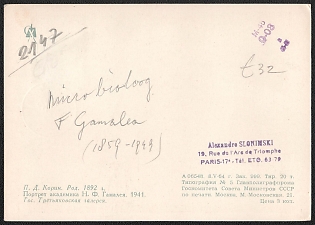 2147
t 32
Microbiolog
F Gamalea
(1859-1949)
Alexandre SLONIMSKI
19, Rue de l'Arc de Triomphe
PARIS-17e - Tél. ETO. 63 79
П. Д. Корин. Род. 1892 г.
Портрет академика Н. Ф. Гамалея. 1941.
Гос. Третьяковская галерея.
А 06548. 8.V 64 г. Зак. 998. Тир. 20 т.
Типография № 5 Главполиграфпрома
Госкомитета Совета Министров СССР
по печати Москва, М.-Московская, 21.
Цена 3 коп.